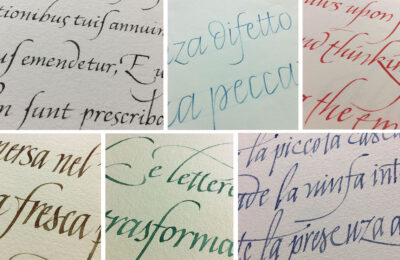 tionibus tuis annuin
us emendetur, E u
sunt prescribo
za difetto
a pecca
upon
nd thinkin
the em
mersa nel
a fresca
Le lettere
trasforma
la piccola casca
de la ninfa int
te la presenza a